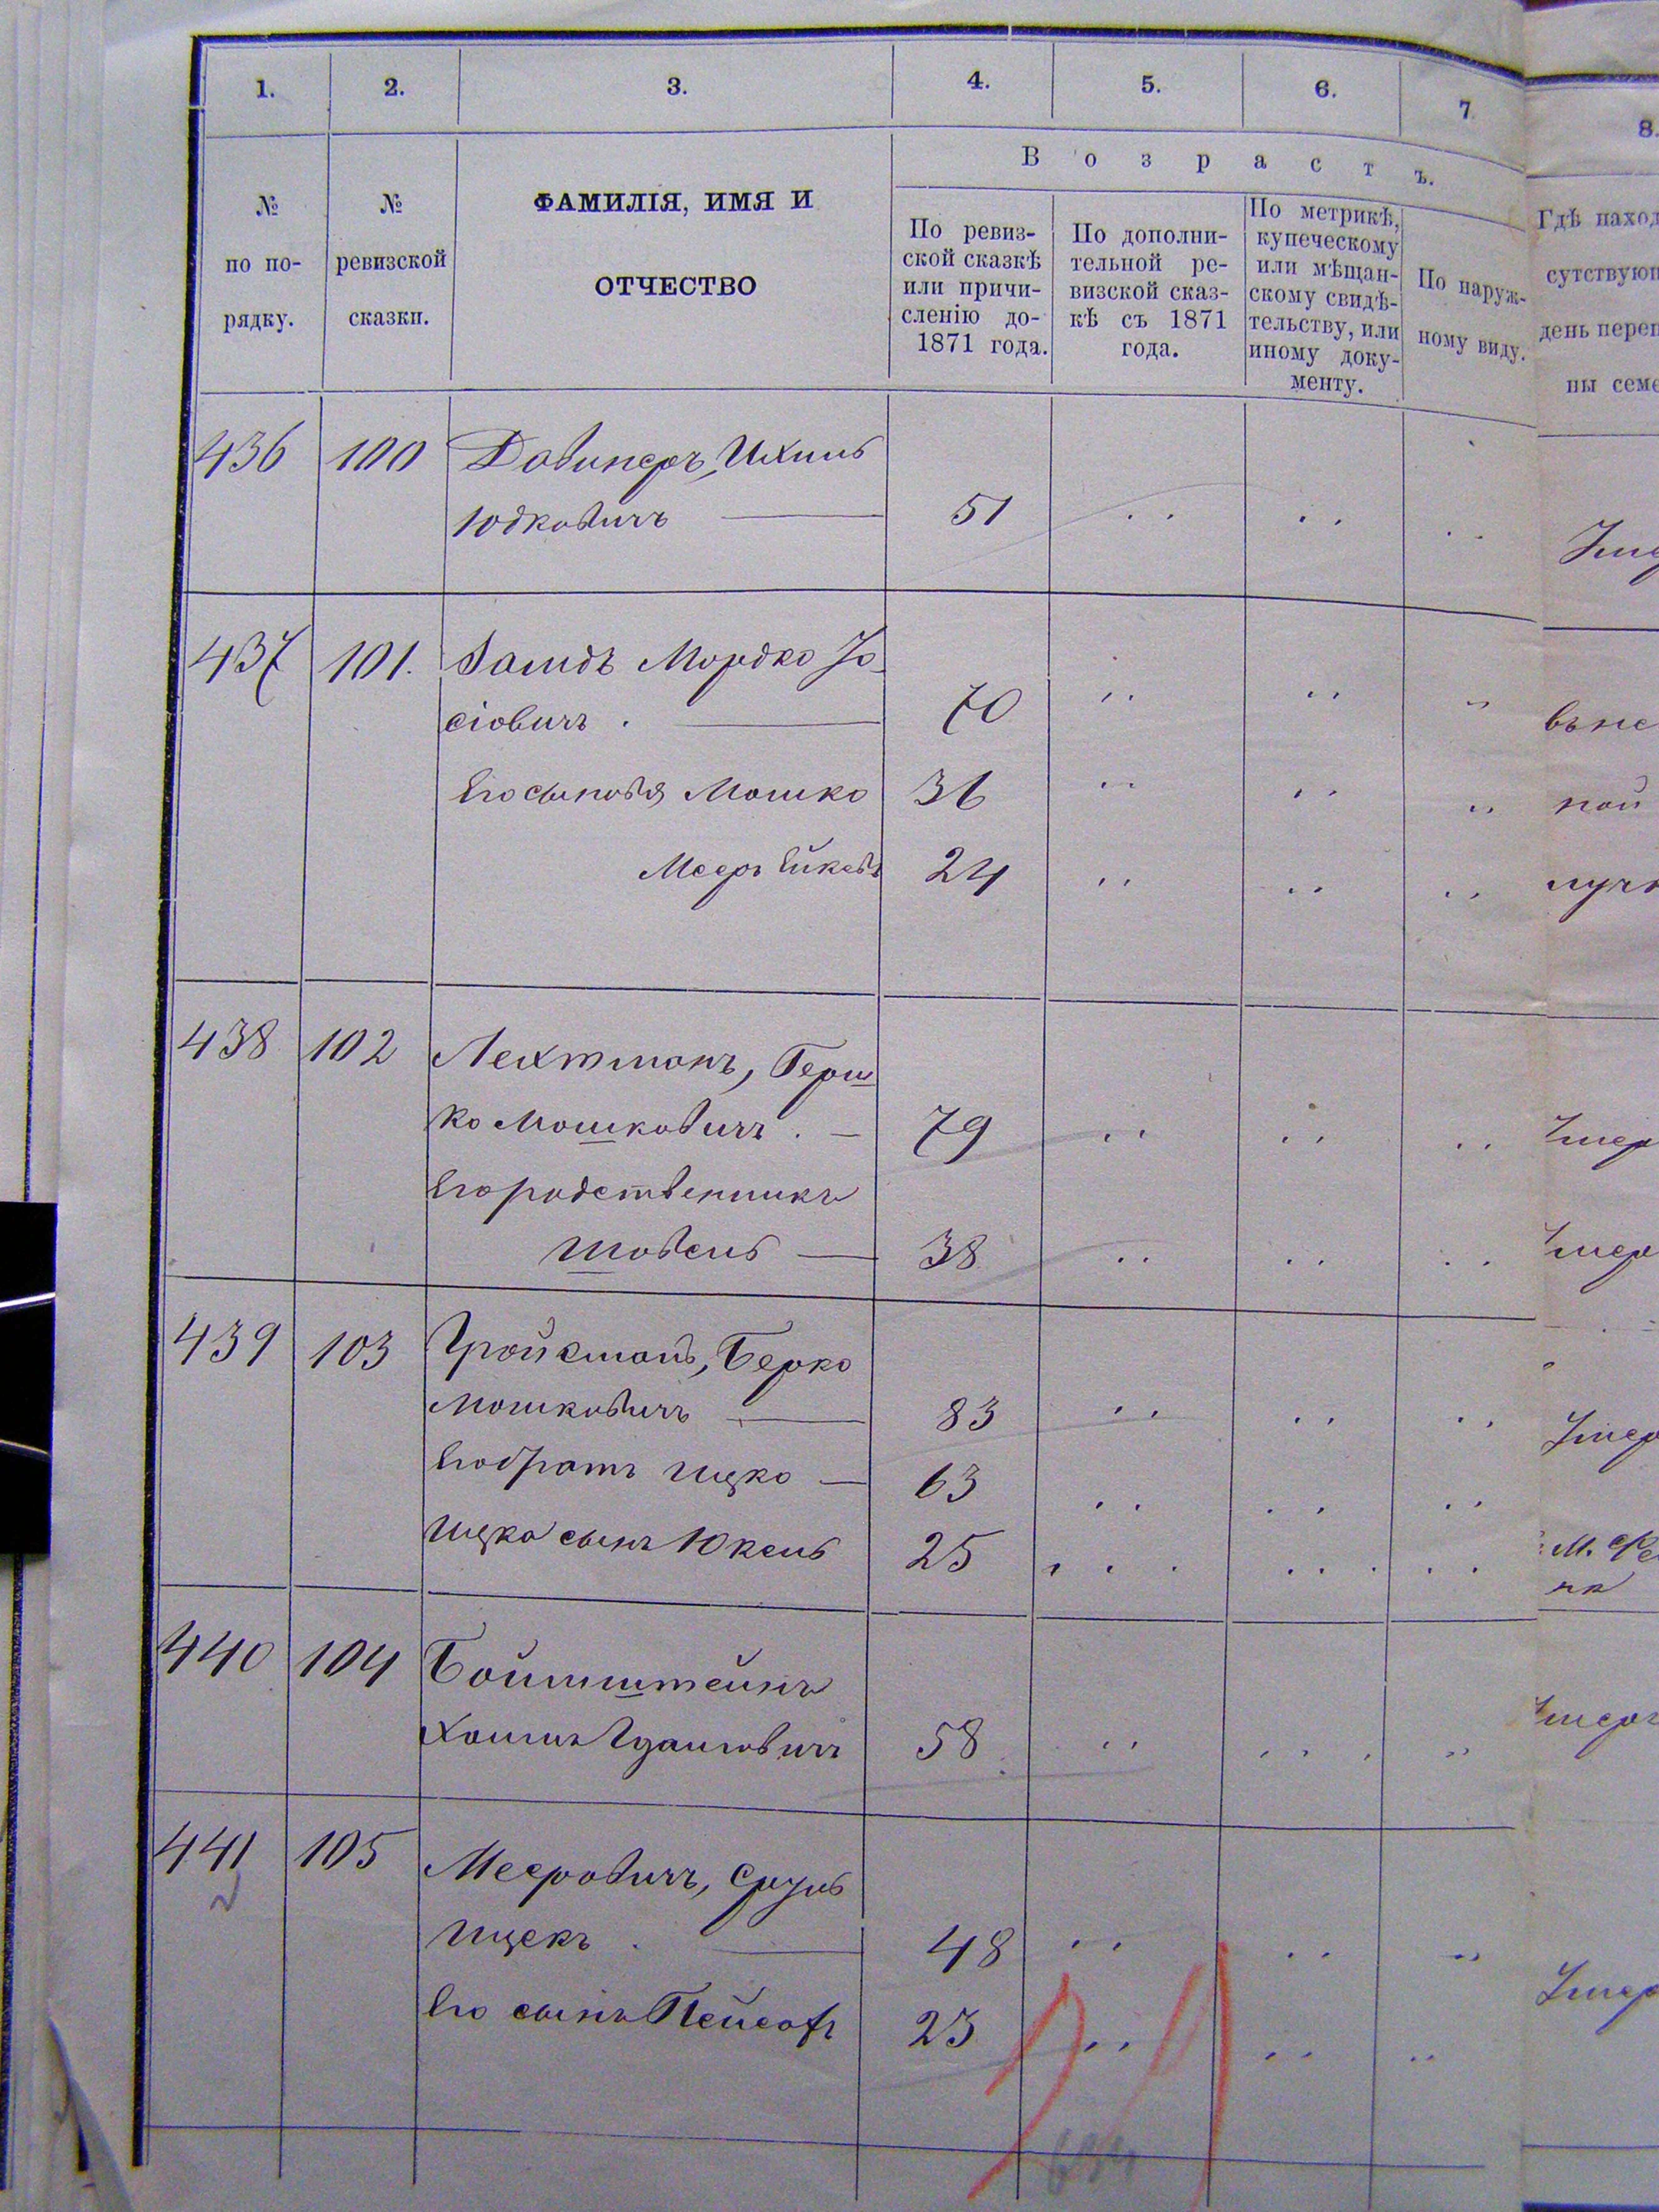 1. 2. 3. 4. 5. 6. 7 8.
В о з р а с т ъ.
№ по по-рядку.
№ ревизской сказки.
ФАМИЛІЯ, ИМЯ И
ОТЧЕСТВО
По ревиз-
ской сказкѣ
или причи-
сленію до-
1871 года.
По дополни-
тельной ре-
визской сказ-
кѣ съ 1871
года.
По метрикѣ,
купеческому
или мѣщан-
скому свидѣ-
тельству, или
иному доку-
менту.
По наруж-
ному виду.
Гдѣ наход
сутствуют
день переп
ны семе
436 100 Довинеръ, Ихиль
Юдковичъ 51
437 101. Замдъ Мордко Іо
сіовичъ . 70
Его сыновья Мошко 36
Мееръ 24
438 102 Лехтманъ, Герш
ко Мошковичъ . 79
Его родственникъ
Шовель 38
439 103 Гройсманъ, Берко
Мошковичъ 83
Его братъ Ицко 63
Ицка сынъ Юкель 25
440 104 Боймштейнъ
Хаимъ 58
441 105 Мееровичъ, Сруль
Ицекъ . 48
Его сынъ Пейсахъ 23